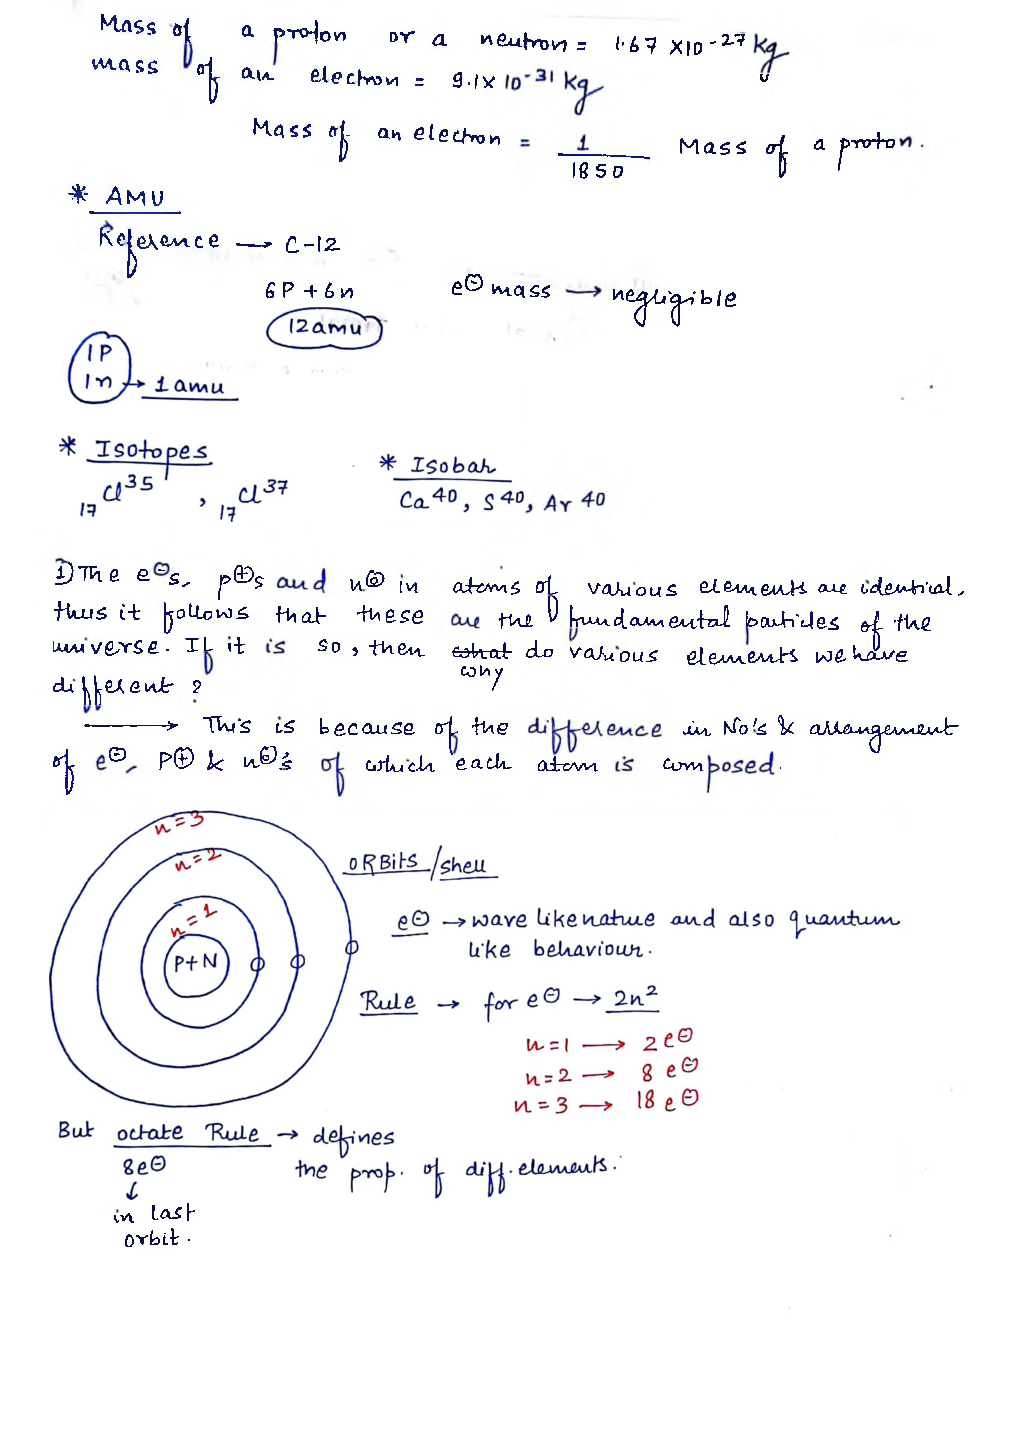 Mass of a proton or a neutron = 1.67 X10⁻²⁷ kg
mass of an electron = 9.1X 10⁻³¹ kg
Mass of an electron = 1/1850 Mass of a proton.
* AMU
Reference → C-12
6P + 6n e⊖ mass → negligible
12amu
1P
1n → 1 amu
* Isotopes * Isobar
₁₇Cl³⁵ , ₁₇Cl³⁷ Ca⁴⁰, S⁴⁰, Ar⁴⁰
1) The e⊖s, p⊕s and n⊙ in atoms of various elements are identical,
thus it follows that these are the fundamental particles of the
universe. If it is so, then what do various elements we have
why
different ?
→ This is because of the difference in No's & arrangement
of e⊖, P⊕ & n⊙'s of which each atom is composed.
n=3
n=2
n=1
P+N
ORBits/shell
e⊖ → wave like nature and also quantum
like behaviour.
Rule → for e⊖ → 2n²
n=1 → 2e⊖
n=2 → 8 e⊖
n=3 → 18 e⊖
But octate Rule → defines
8e⊖ the prop. of diff. elements.
↓
in last
orbit.